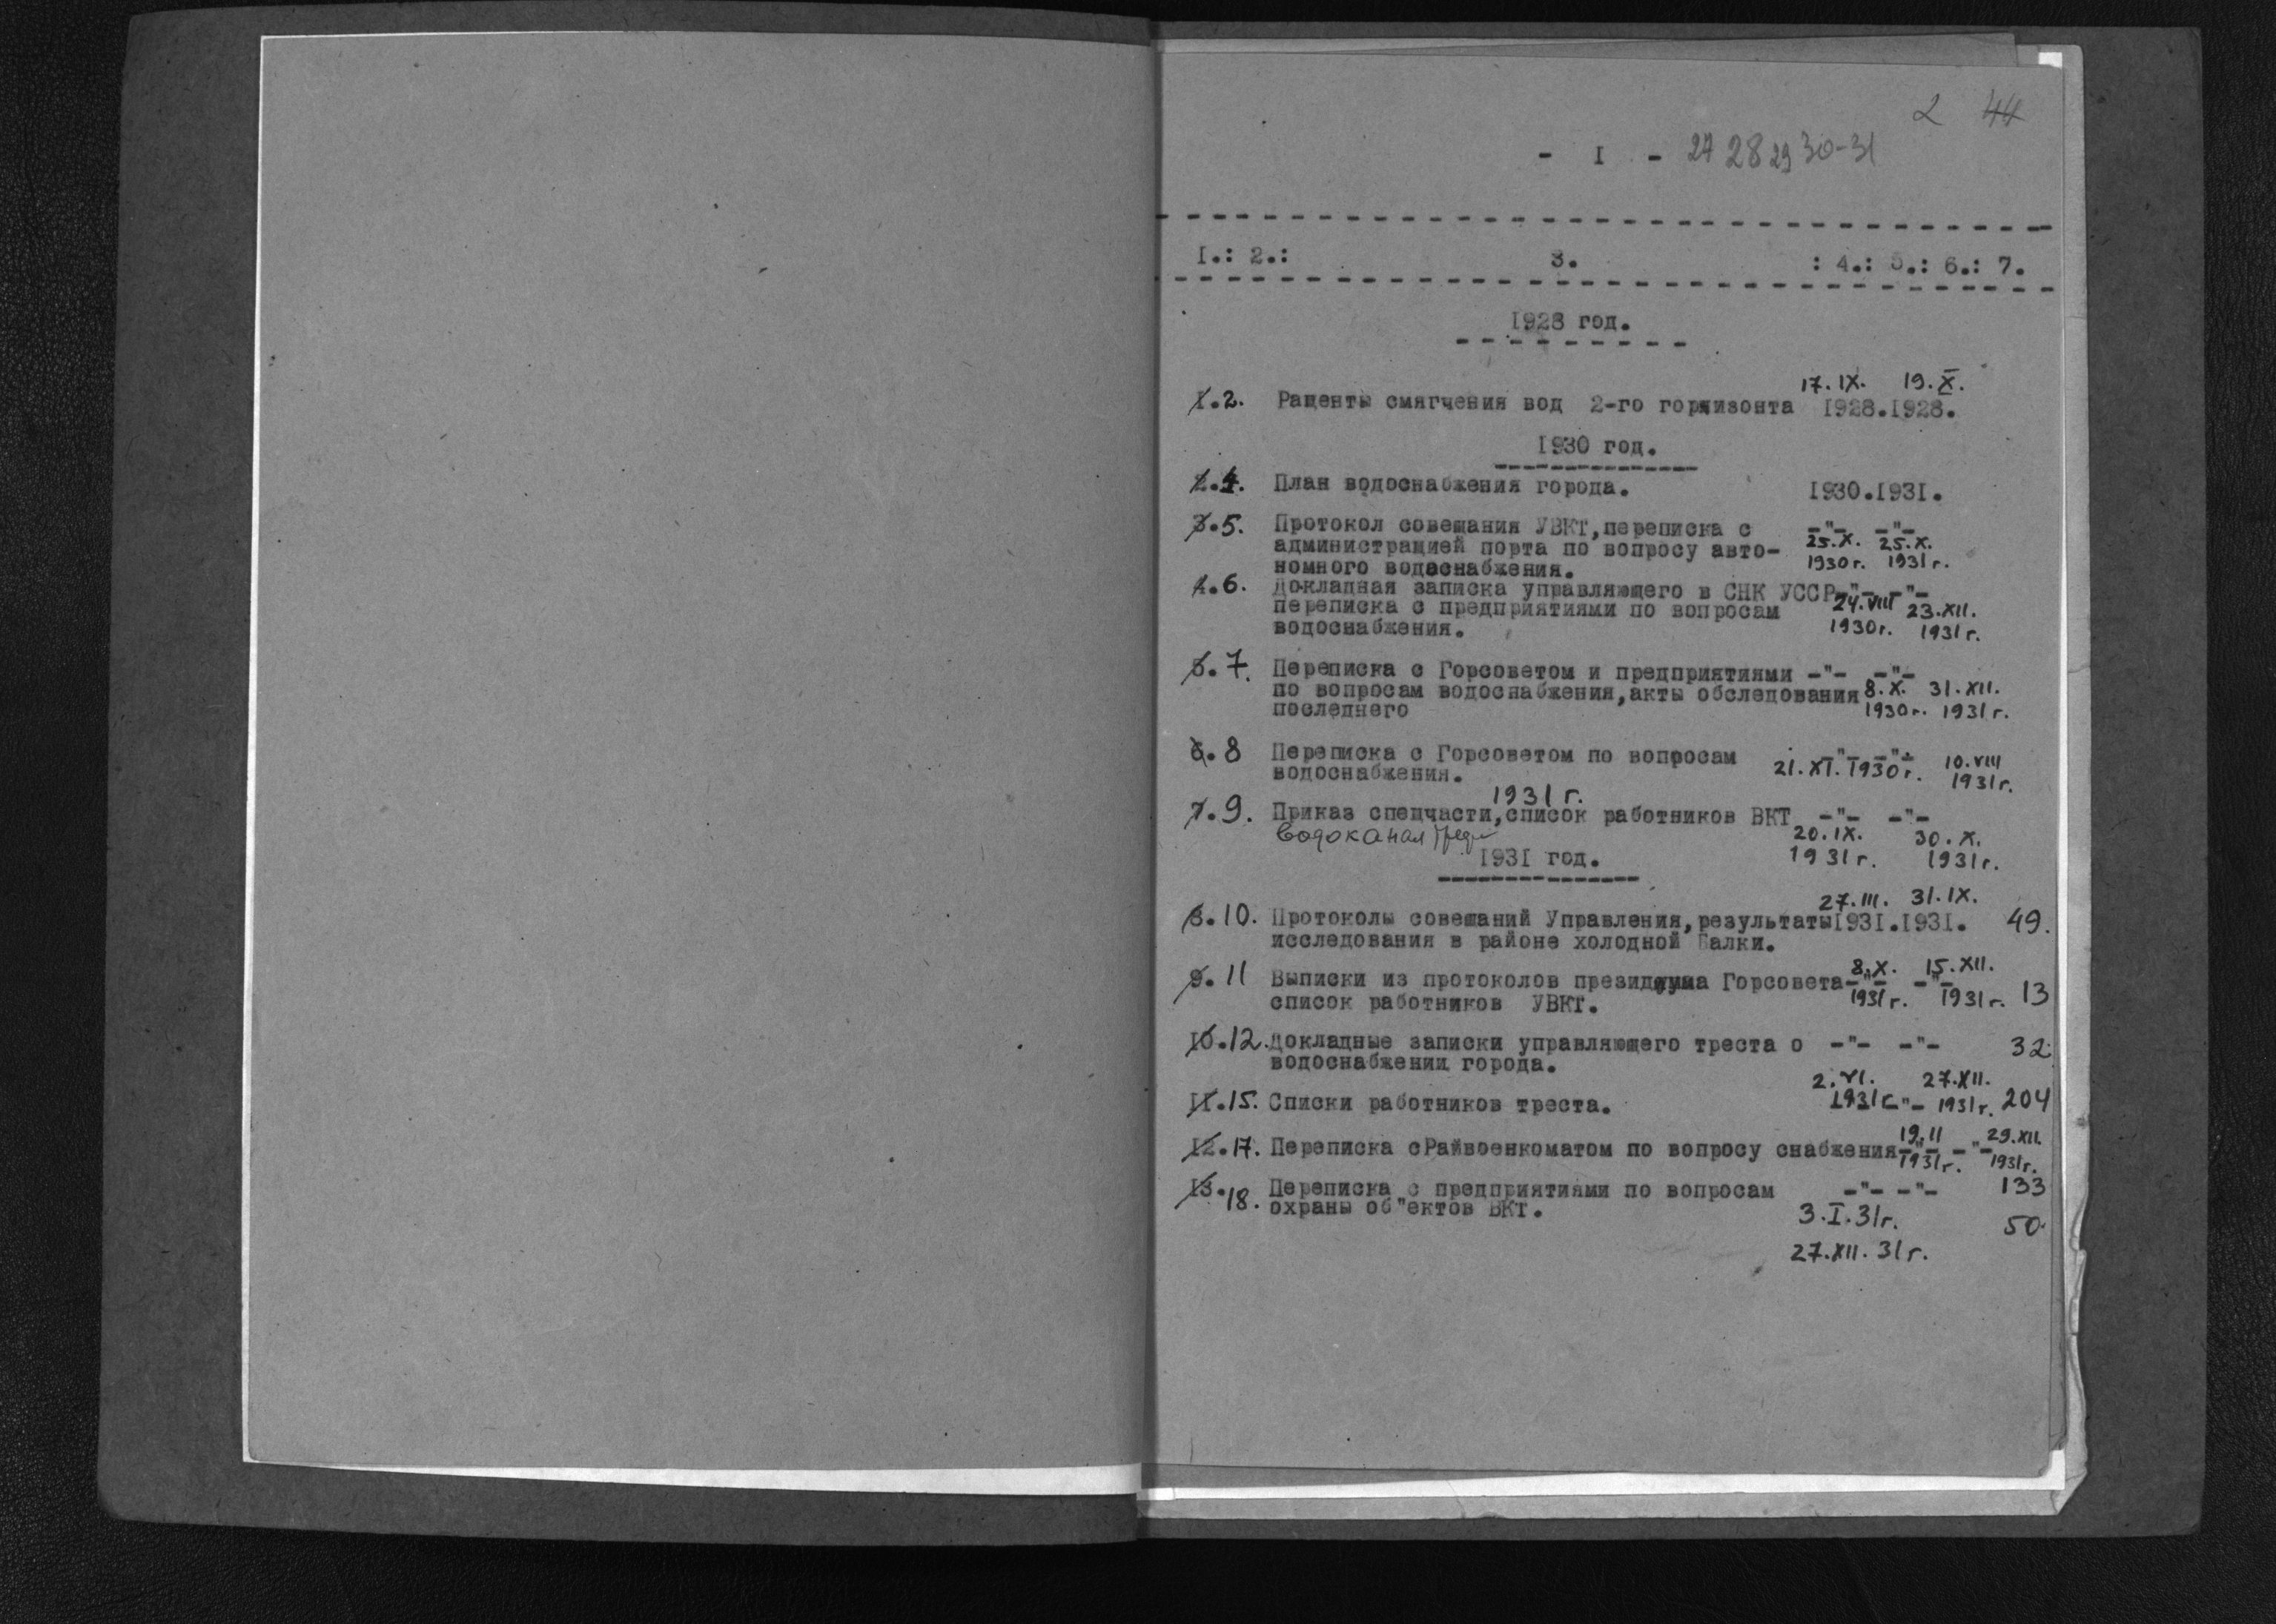 2 44
- I - 27 28 29 30-31
I.: 2.: 3. : 4.: 5.: 6.: 7.
1928 год.
17.IX. 19.X.
1.2. Раценты смягчения вод 2-го горизонта 1928.1928.
1930 год.
2.4. План водоснабжения города. 1930.1931.
3.5. Протокол совещания УВКТ,переписка с -"- -"-
администрацией порта по вопросу авто- 25.X. 25.X.
номного водоснабжения. 1930г. 1931г.
4.6. Докладная записка управляющего в СНК УССР -"- -"-
переписка с предприятиями по вопросам 24.VIII 23.XII.
водоснабжения. 1930г. 1931г.
5.7. Переписка с Горсоветом и предприятиями -"- -"-
по вопросам водоснабжения,акты обследования 8.X. 31.XII.
последнего 1930г. 1931г.
6.8 Переписка с Горсоветом по вопросам -"- -"-
водоснабжения. 21.XI.1930г. 10.VIII 1931г.
1931г.
7.9. Приказ спецчасти,список работников ВКТ -"- -"-
20.IX. 30.X.
1931 год. 1931г. 1931г.
27.III. 31.IX.
8.10. Протоколы совещаний Управления,результаты 1931.1931. 49.
исследования в районе холодной Балки.
8.X. 15.XII.
9.11 Выписки из протоколов президиума Горсовета -"- -"-
список работников УВКТ. 1931г. 1931г. 13
10.12. Докладные записки управляющего треста о -"- -"- 32
водоснабжении города.
2.VI. 27.XII.
11.15. Списки работников треста. 1931г. -"- 1931г. 204
19.II 29.XII.
12.17. Переписка сРайвоенкоматом по вопросу снабжения -"- -"-
1931г. 1931г.
13.18. Переписка с предприятиями по вопросам -"- -"- 133
охраны об"ектов ВКТ. 3.I.31г. 50.
27.XII.31г.